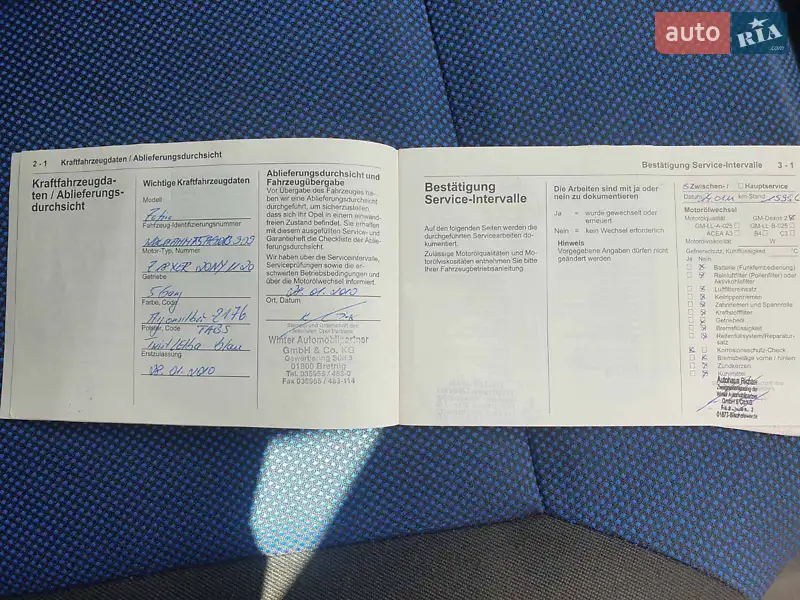 auto RIA.com
2 - 1 Kraftfahrzeugdaten / Ablieferungsdurchsicht
Kraftfahrzeugda-
ten / Ablieferungs-
durchsicht
Wichtige Kraftfahrzeugdaten
Modell
Zafira
Fahrzeug-Identifizierungsnummer
Motor-Typ, Nummer
Getriebe
5 Gang
Farbe, Code
2176
Polster, Code TABS
blau
Erstzulassung
28. 01. 2010
Ablieferungsdurchsicht und
Fahrzeugübergabe
Vor Übergabe des Fahrzeuges ha-
ben wir eine Ablieferungsdurchsicht
durchgeführt, um sicherzustellen,
dass sich Ihr Opel in einem einwand-
freien Zustand befindet. Sie erhalten
mit diesem ausgefüllten Service- und
Garantieheft die Checkliste der Ablie-
ferungsdurchsicht.
Wir haben über die Serviceintervalle,
Serviceprüfungen sowie die er-
schwerten Betriebsbedingungen und
über die Motorölwechsel informiert.
28. 01. 2010
Ort, Datum
Winter Automobilpartner
GmbH & Co. KG
Gewerbering Süd 3
01900 Bretnig
Tel. 035955 / 483-0
Fax 035955 / 483-114
Bestätigung Service-Intervalle 3 - 1
Bestätigung
Service-Intervalle
Auf den folgenden Seiten werden die
durchgeführten Servicearbeiten do-
kumentiert.
Zulässige Motorölqualitäten und Mo-
torölviskositäten entnehmen Sie bitte
Ihrer Fahrzeugbetriebsanleitung.
Die Arbeiten sind mit ja oder
nein zu dokumentieren
Ja = wurde gewechselt oder
erneuert
Nein = kein Wechsel erforderlich
Hinweis
Vorgegebene Angaben dürfen nicht
geändert werden.
Zwischen- / Hauptservice
Datum km-Stand
Motorölwechsel
Motorölqualität GM-Dexos 2
GM-LL-A-025 GM-LL-B-025
ACEA A3 B4 C3
Motorölviskosität W
Gefrierschutz, Kühlflüssigkeit °C
Ja Nein
Batterie (Funkfernbedienung)
Reinluftfilter (Pollenfilter) oder
Aktivkohlefilter
Luftfiltereinsatz
Keilrippenriemen
Zahnriemen und Spannrolle
Kraftstofffilter
Getriebeöl
Bremsflüssigkeit
Reifenfüllsystem/Reparatur-
satz
Korrosionsschutz-Check
Bremsbeläge vorne / hinten
Zündkerzen
Kühlmittel
Autohaus Richter
Winter Automobilpartner
GmbH & Co. KG
01877 Bischofswerda